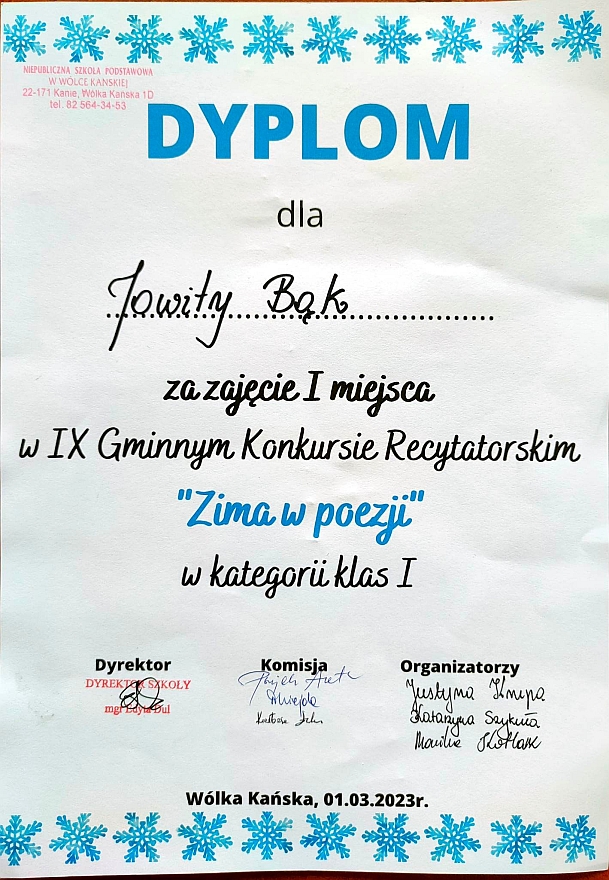 NIEPUBLICZNA SZKOŁA PODSTAWOWA
W WÓLCE KAŃSKIEJ
22-171 Kanie, Wólka Kańska 1D
tel. 82 564-34-53
DYPLOM
dla
Jowity Bąk
za zajęcie I miejsca
w IX Gminnym Konkursie Recytatorskim
"Zima w poezji"
w kategorii klas I
Dyrektor
Komisja
Organizatorzy
DYREKTOR SZKOŁY
mgr Edyta Dul
Justyna Knapa
Katarzyna Szykuła
Monika Kotlarz
Wólka Kańska, 01.03.2023r.